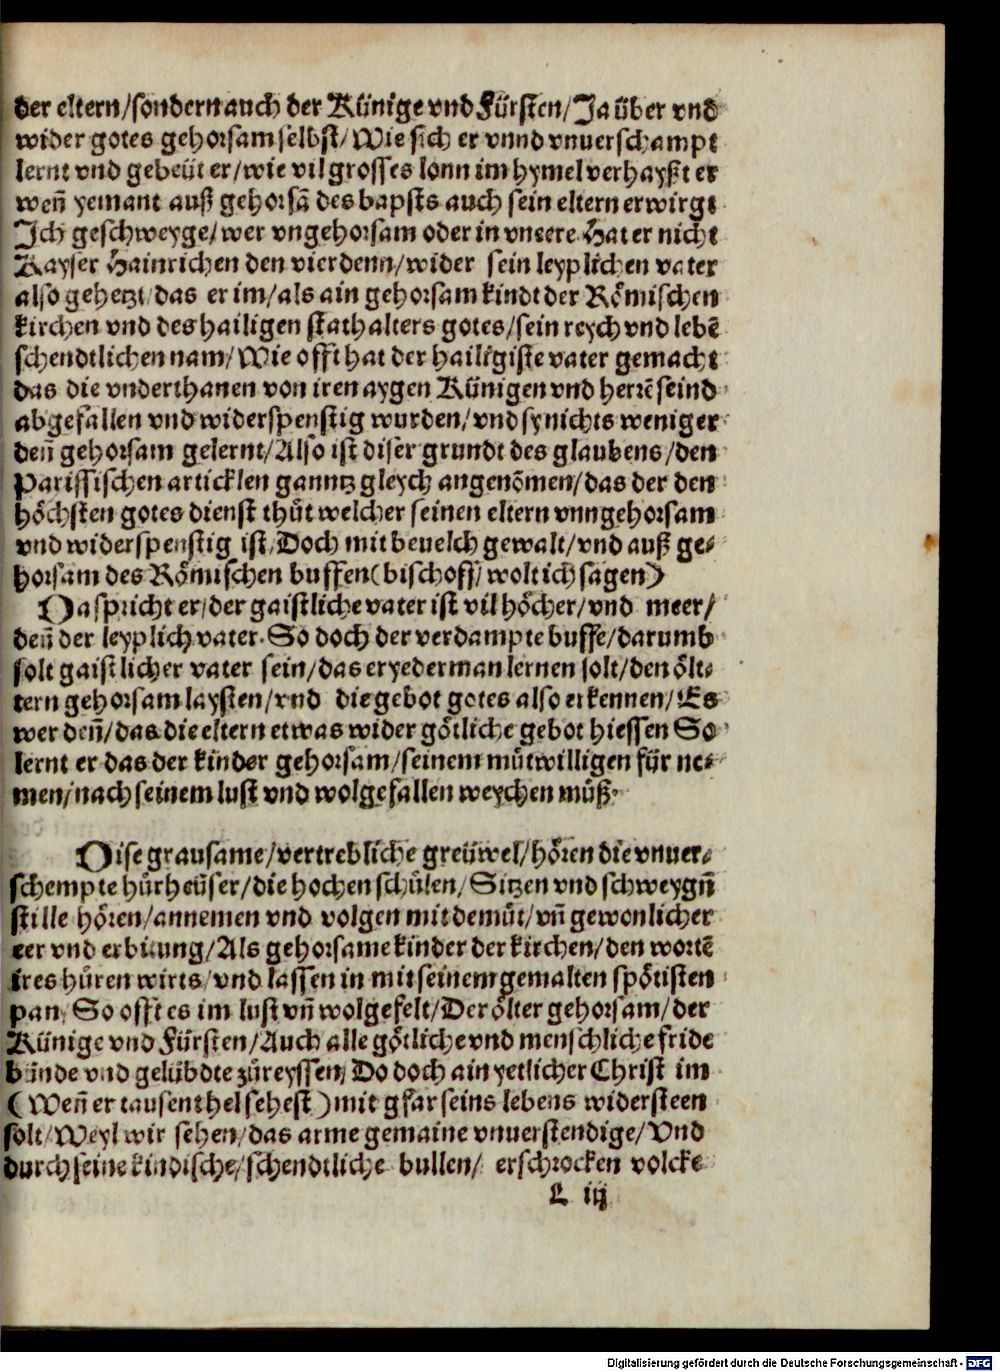 der eltern/sondern auch der Künige vnd Fürsten/Ja über vnd
wider gotes gehorsam selbst/Wie sich er vnnd vnuerschampt
lernt vnd gebeüt er/wie vil grosses lonn im hymel verhayßt er
wen̄ yemant auß gehorsā des bapsts auch sein eltern erwirgt
Ich geschweyge/wer vngehorsam oder in vneere Hat er nicht
Kayser Hainrichen den vierdenn/wider sein leyplichen vater
also gehetzt/das er im/als ain gehorsam kindt der Römischen
kirchen vnd des hailigen stathalters gotes/sein reych vnd lebē
schendtlichen nam/Wie offt hat der hailigiste vater gemacht
das die vnderthanen von iren aygen Künigen vnd herrē seind
abgefallen vnd widerspenstig wurden/vnd sy nichts weniger
den̄ gehorsam gelernt/Also ist diser grundt des glaubens/den
Parissischen articklen ganntz gleych angenōmen/das der den
höchsten gotes dienst thůt welcher seinen eltern vnngehorsam
vnd widerspenstig ist/Doch mit beuelch gewalt/vnd auß ge-
horsam des Römischen buffen(bischoff/wolt ich sagen)
Da spricht er/der gaistliche vater ist vil höcher/vnd meer/
den̄ der leyplich vater. So doch der verdampte buffe/darumb
solt gaistlicher vater sein/das er yederman lernen solt/den ölt-
tern gehorsam laysten/vnd die gebot gotes also erkennen/Es
wer den̄/das die eltern etwas wider götliche gebot hiessen So
lernt er das der kinder gehorsam/seinem můtwilligen für ne-
men/nach seinem lust vnd wolgefallen weychen můß.
Dise grausame/vertrebliche greüwel/hören die vnuer-
schempte hůrheüser/die hochen schůlen/Sitzen vnd schweygn̄
stille hören/annemen vnd volgen mit demůt/vn̄ gewonlicher
eer vnd erbitung/Als gehorsame kinder der kirchen/den wortē
ires hůren wirts/vnd lassen in mit seinem gemalten spötisten
pan/So offt es im lust vn̄ wolgefelt/Der ölter gehorsam/der
Künige vnd Fürsten/Auch alle götliche vnd menschliche fride
bünde vnd gelübdte zůreyssen/Do doch ain yetlicher Christ im
(Wen̄ er tausent hel sehest)mit gfar seins lebens widersteen
solt/Weyl wir sehen/das arme gemaine vnuerstendige/Vnd
durch seine kindische/schendtliche bullen/ erschrocken volcke
L iij
Digitalisierung gefördert durch die Deutsche Forschungsgemeinschaft - DFG